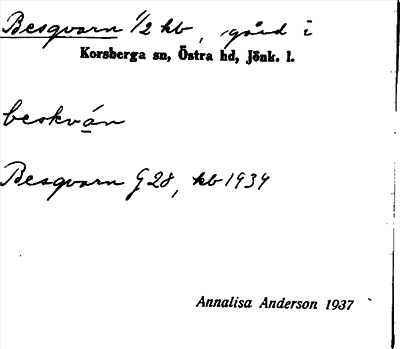 Besqvarn 1/2 kb, gård i
Korsberga sn, Östra hd, Jönk. l.
beskván
Besqvarn G28, kb 1934
Annalisa Anderson 1937